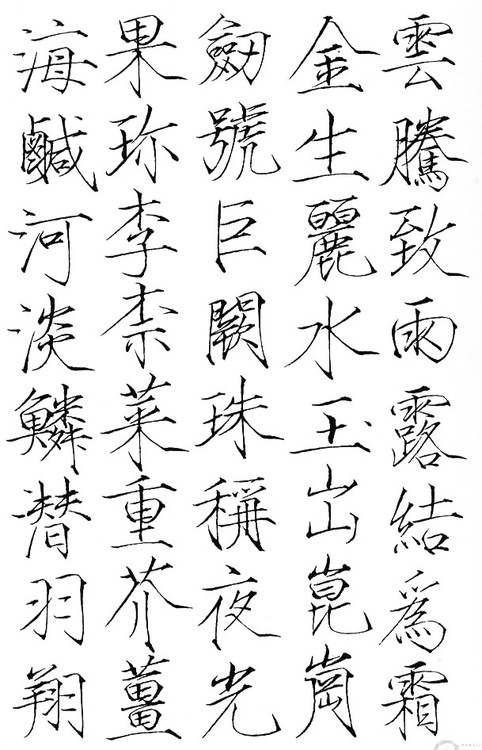 雲騰致雨露結爲霜
金生麗水玉出崑崗
劒號巨闕珠稱夜光
果珎李柰菜重芥薑
海鹹河淡鱗潜羽翔